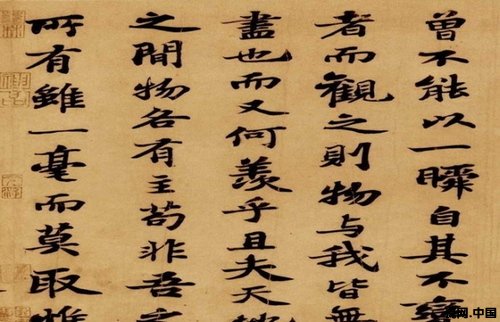 曾不能以一瞬自其不變
者而觀之則物与我皆無
盡也而又何羨乎且夫天地
之間物各有主苟非吾之
所有雖一毫而莫取惟
网.中国